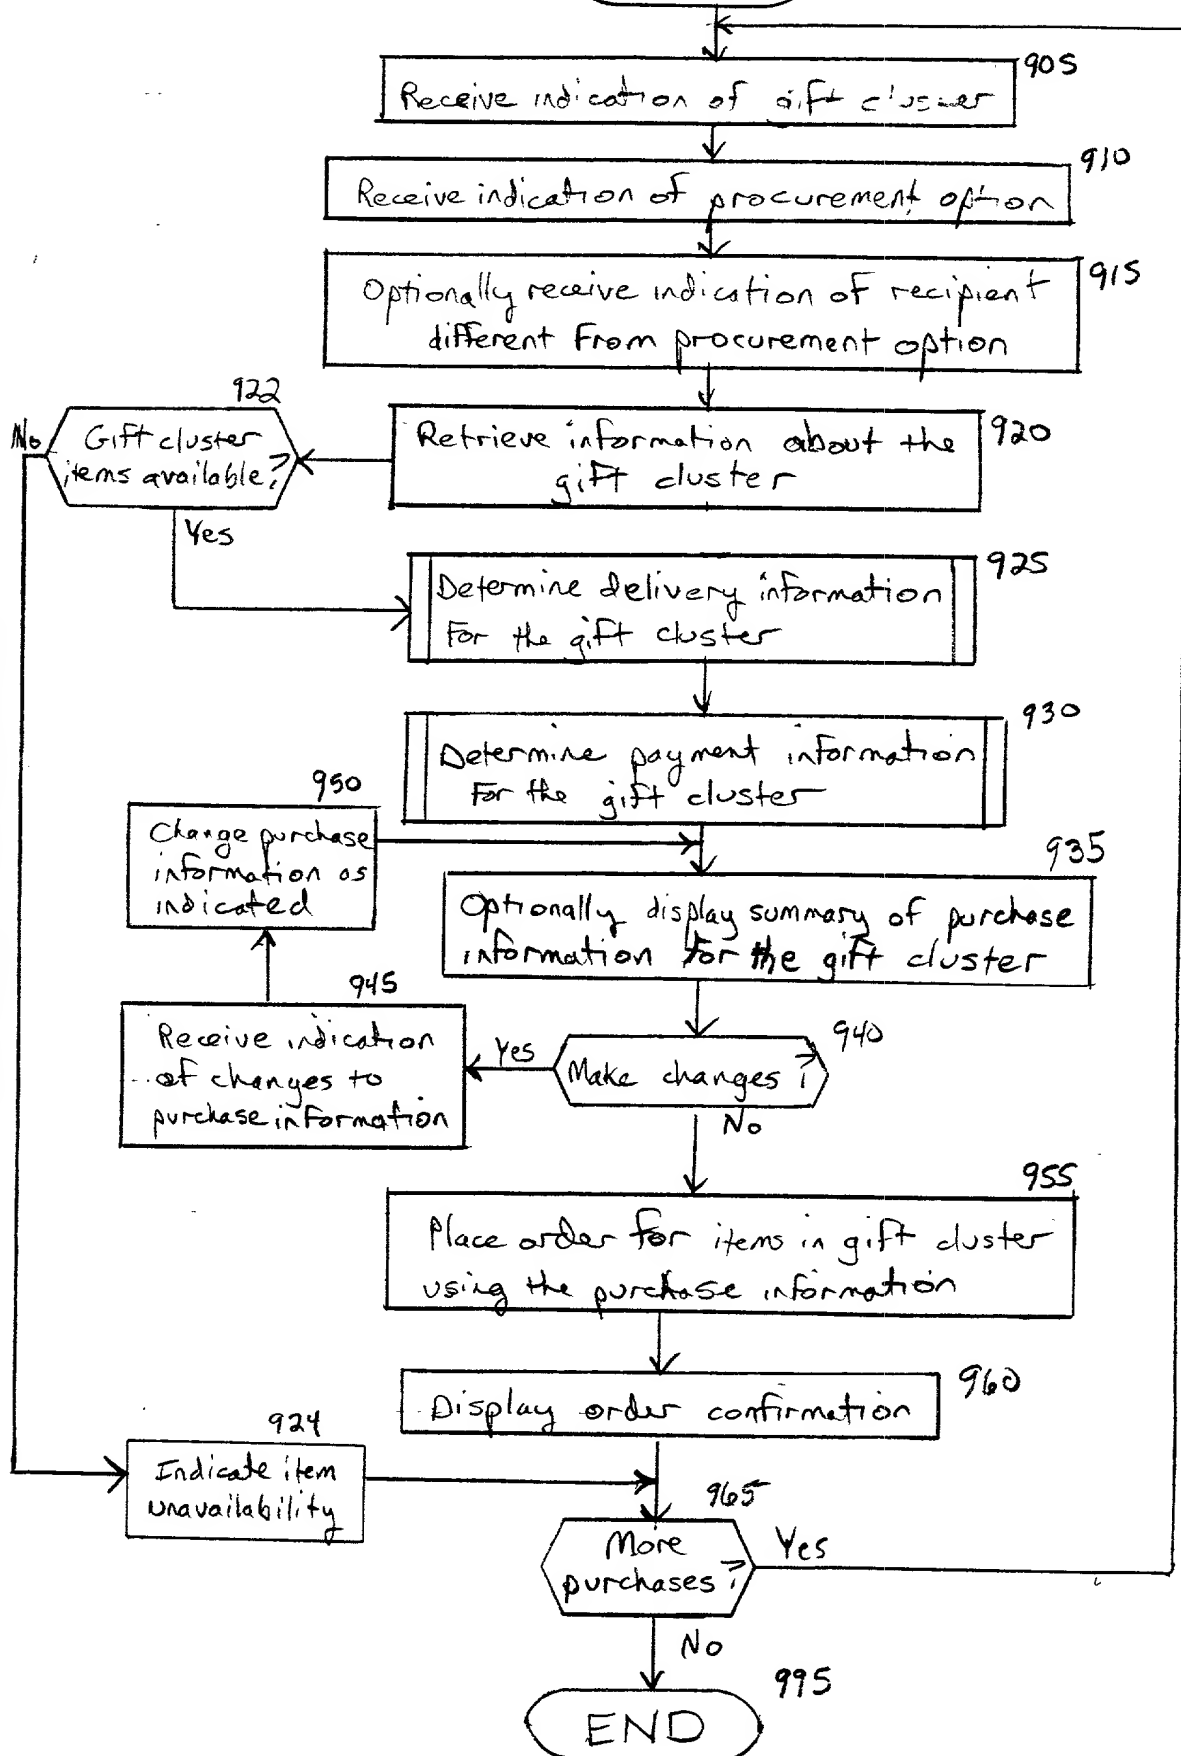 905
Receive indication of gift cluster
910
Receive indication of procurement option
915
Optionally receive indication of recipient
different from procurement option
922
No
Gift cluster
items available?
Yes
920
Retrieve information about the
gift cluster
925
Determine delivery information
For the gift cluster
930
Determine payment information
For the gift cluster
950
Change purchase
information as
indicated
935
Optionally display summary of purchase
information for the gift cluster
945
Receive indication
of changes to
purchase information
Yes
940
Make changes?
No
955
Place order for items in gift cluster
using the purchase information
960
Display order confirmation
924
Indicate item
unavailability
965
More
purchases?
Yes
No
995
END